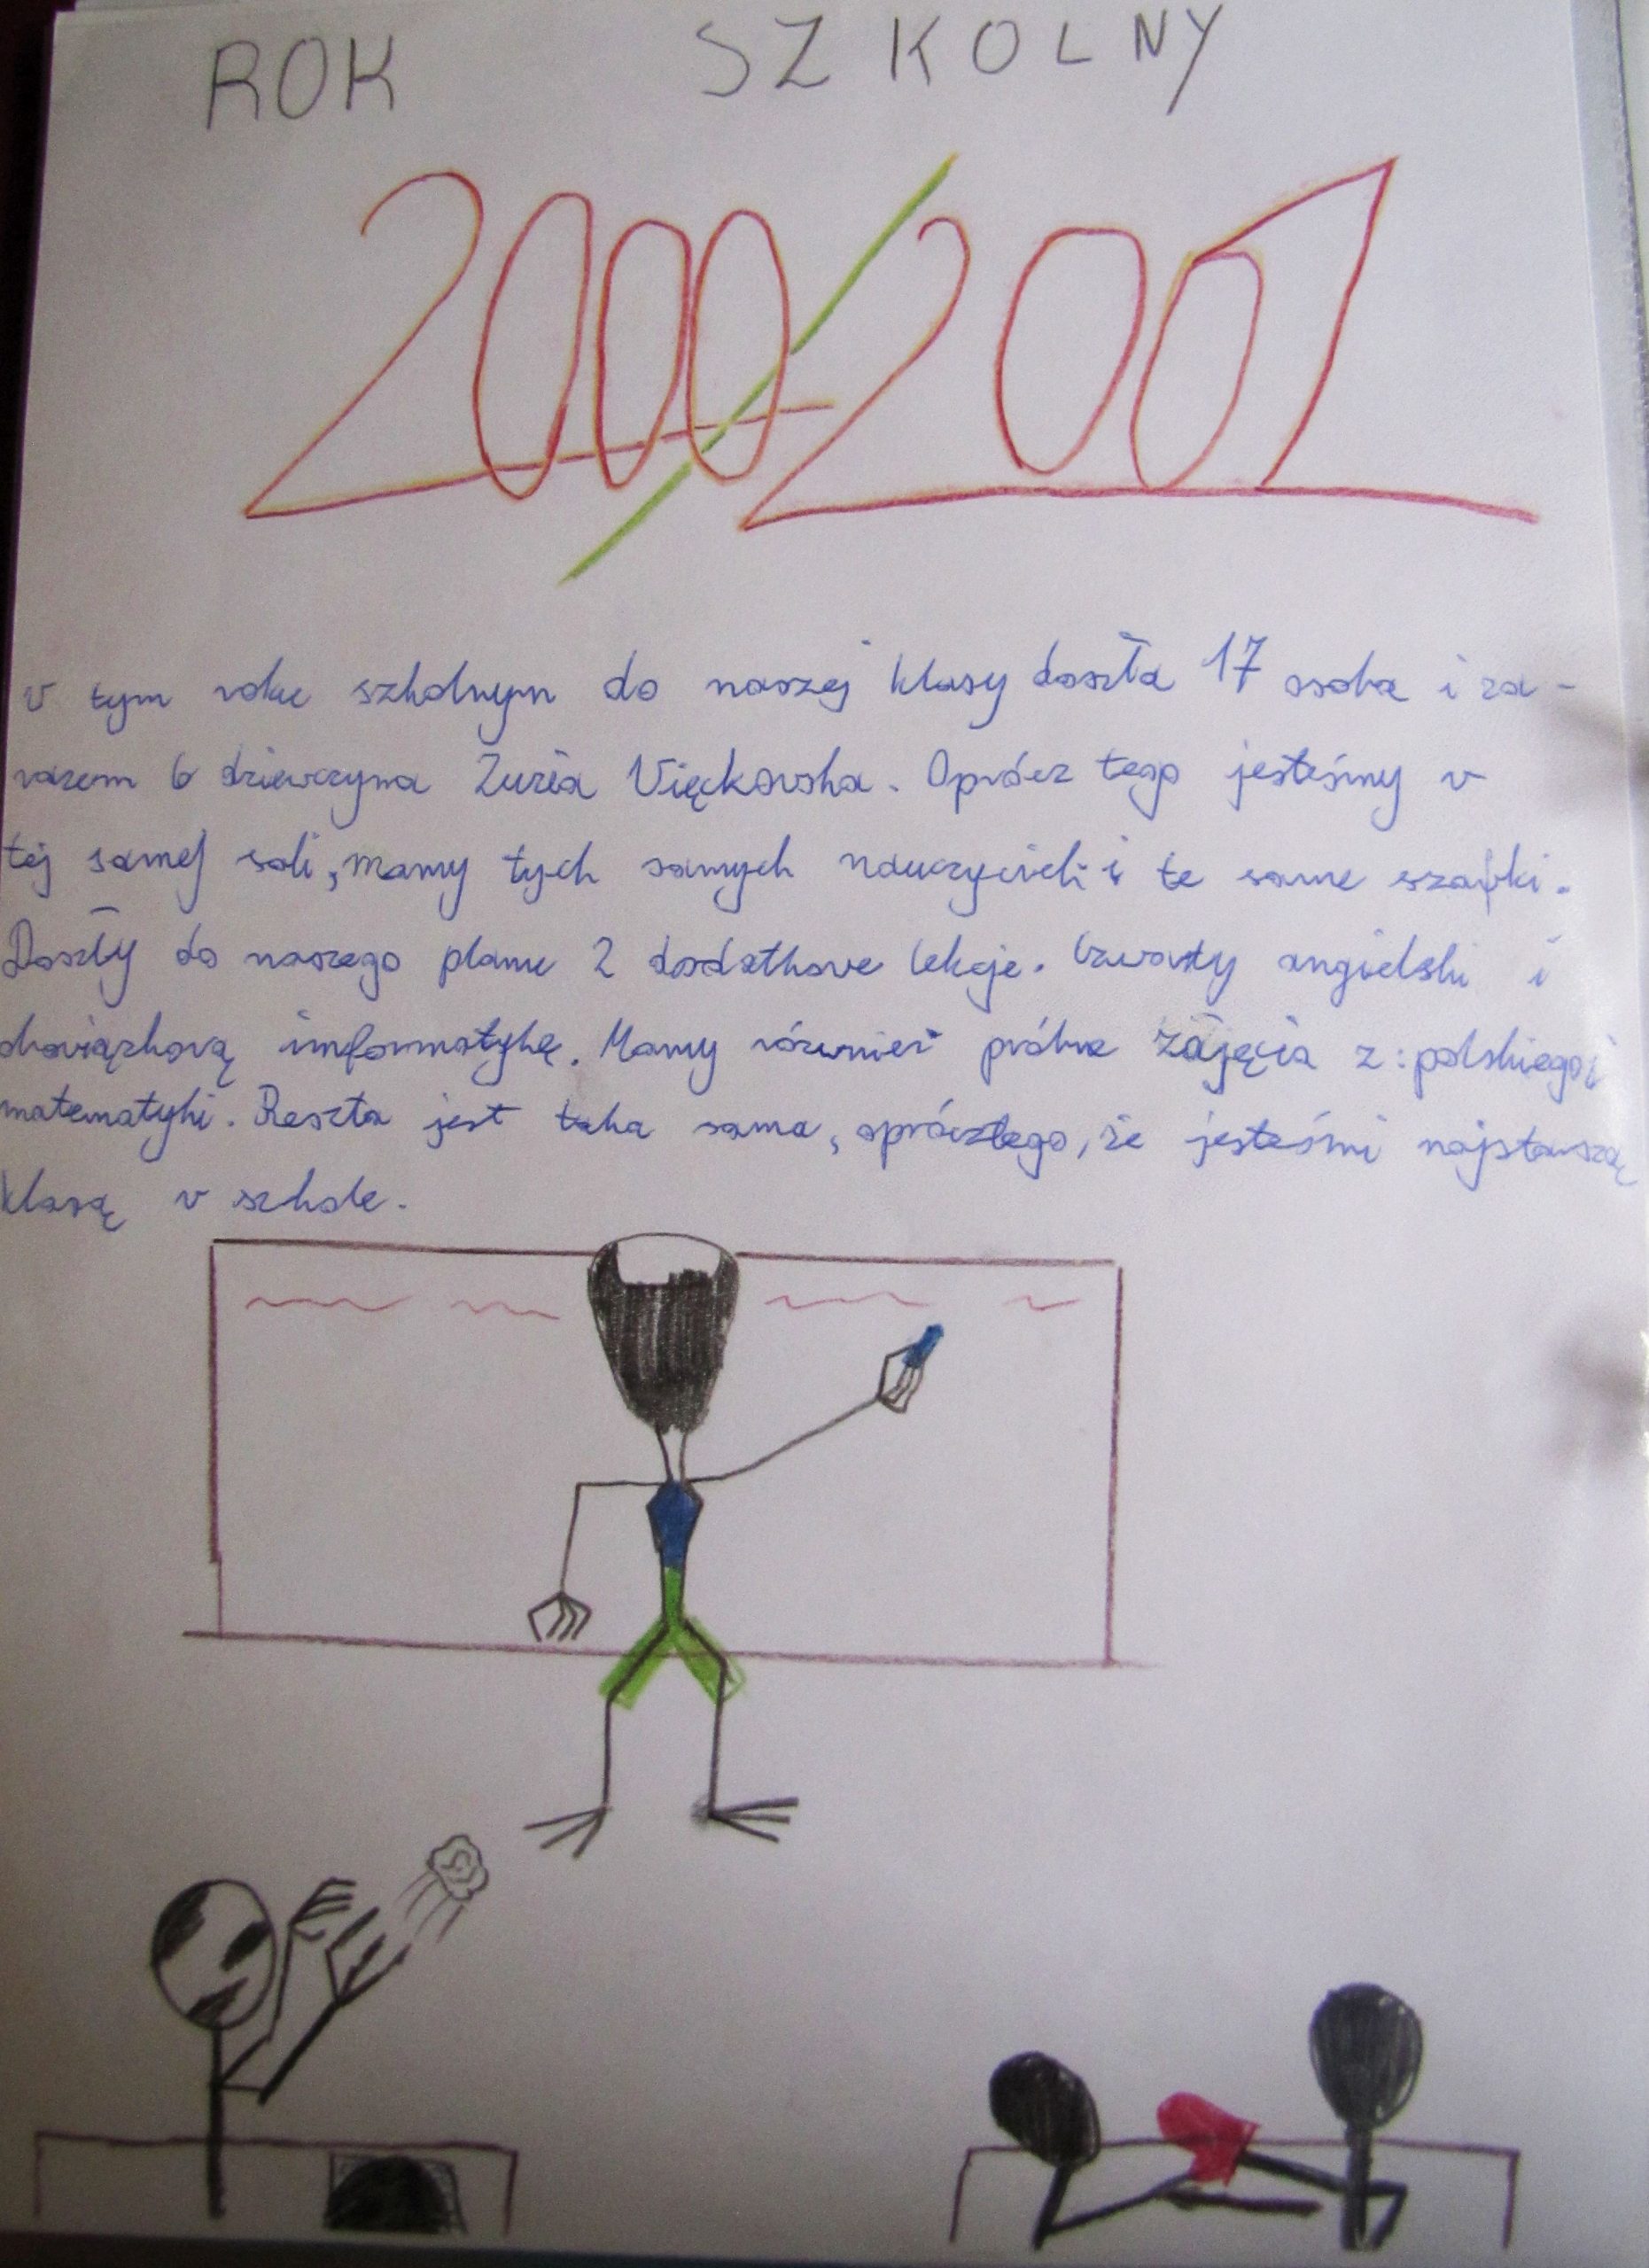 ROK SZKOLNY
2000/2001
V tym roku szkolnym do naszej klasy doszła 17 osoba i za-
razem 6 dziewczyna Zuzia Vięckovska. Oprócz tego jesteśmy v
tej samej sali, mamy tych samych nauczycieli i te same szafki.
Doszły do naszego planu 2 dodatkove lekcje. Czwarty angielski i
obowiązkovą informatykę. Mamy róznież próbne zajęcia z: polskiego i
matematyki. Reszta jest taka sama, oprócztego, że jesteśmi najstarszą
klasą v szkole.